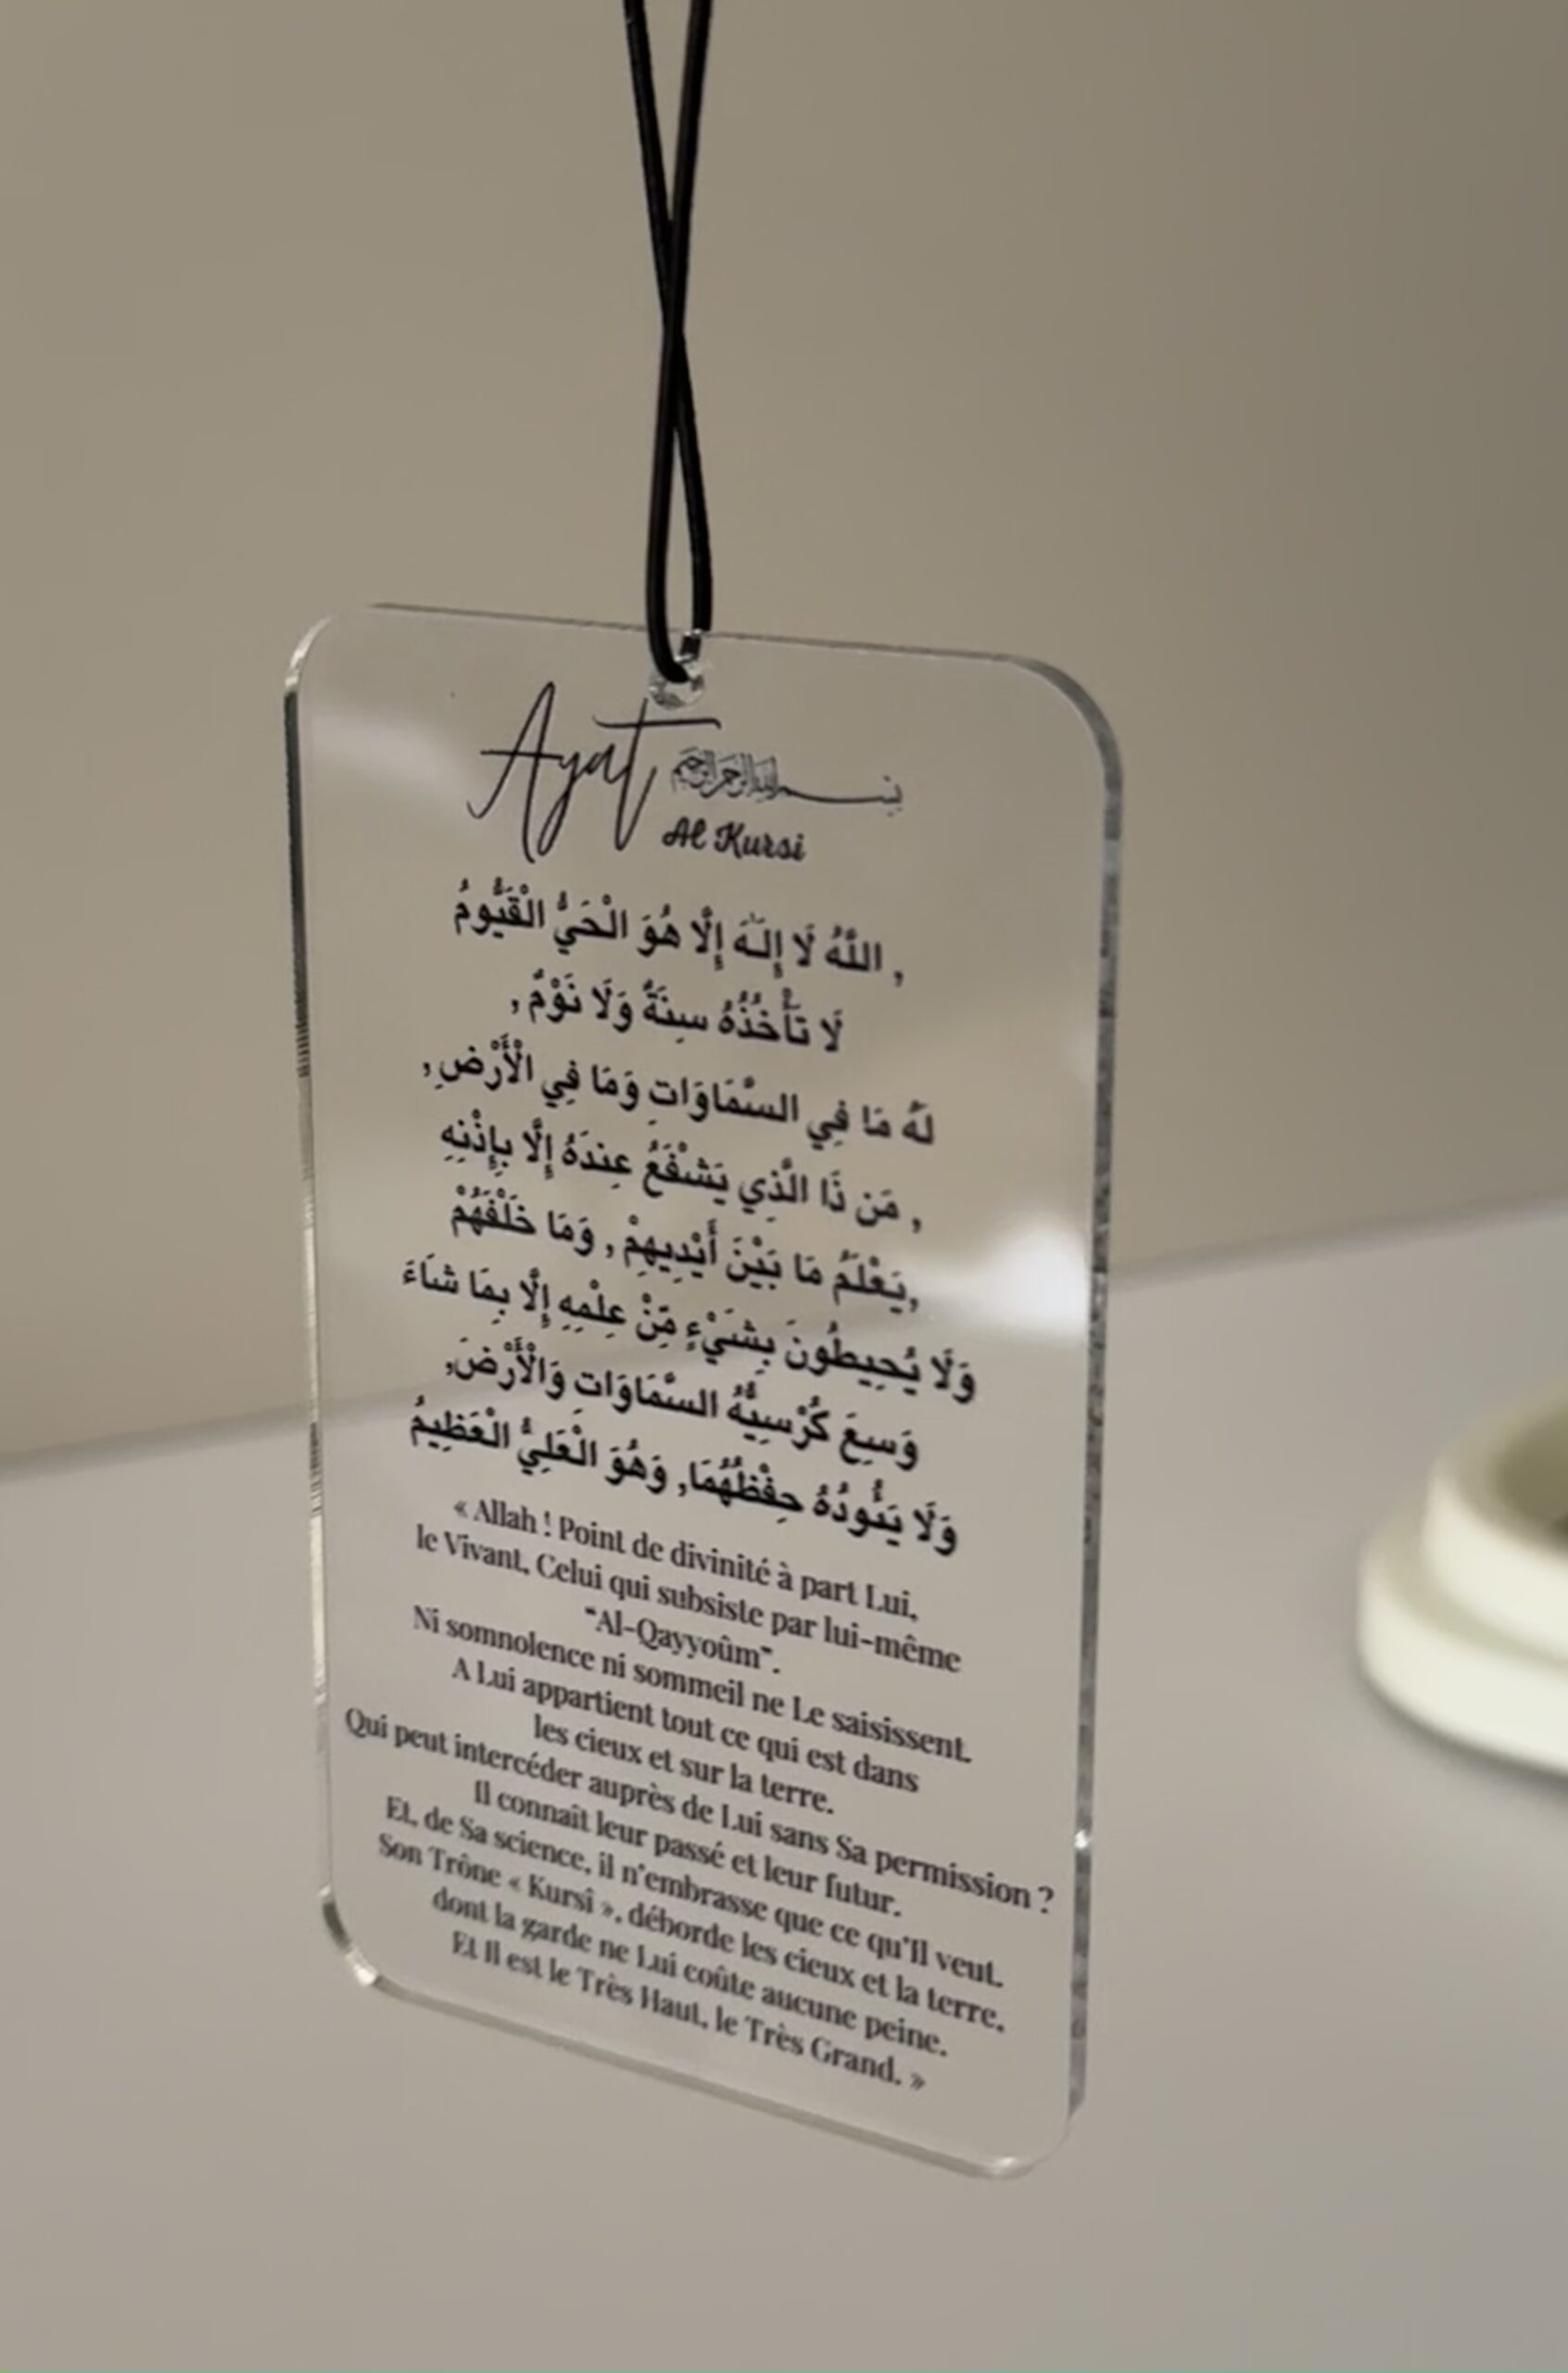 Ayat
بسم الله الرحمن الرحيم
Al Kursi
, اللَّهُ لَا إِلَٰهَ إِلَّا هُوَ الْحَيُّ الْقَيُّومُ
لَا تَأْخُذُهُ سِنَةٌ وَلَا نَوْمٌ ,
لَّهُ مَا فِي السَّمَاوَاتِ وَمَا فِي الْأَرْضِ ,
, مَن ذَا الَّذِي يَشْفَعُ عِندَهُ إِلَّا بِإِذْنِهِ
,يَعْلَمُ مَا بَيْنَ أَيْدِيهِمْ , وَمَا خَلْفَهُمْ
وَلَا يُحِيطُونَ بِشَيْءٍ مِّنْ عِلْمِهِ إِلَّا بِمَا شَاءَ
وَسِعَ كُرْسِيُّهُ السَّمَاوَاتِ وَالْأَرْضَ,
وَلَا يَئُودُهُ حِفْظُهُمَا, وَهُوَ الْعَلِيُّ الْعَظِيمُ
« Allah ! Point de divinité à part Lui,
le Vivant, Celui qui subsiste par lui-même
"Al-Qayyoûm".
Ni somnolence ni sommeil ne Le saisissent.
A Lui appartient tout ce qui est dans
les cieux et sur la terre.
Qui peut intercéder auprès de Lui sans Sa permission ?
Il connaît leur passé et leur futur.
Et, de Sa science, il n'embrasse que ce qu'Il veut.
Son Trône « Kursî », déborde les cieux et la terre,
dont la garde ne Lui coûte aucune peine.
Et Il est le Très Haut, le Très Grand. »